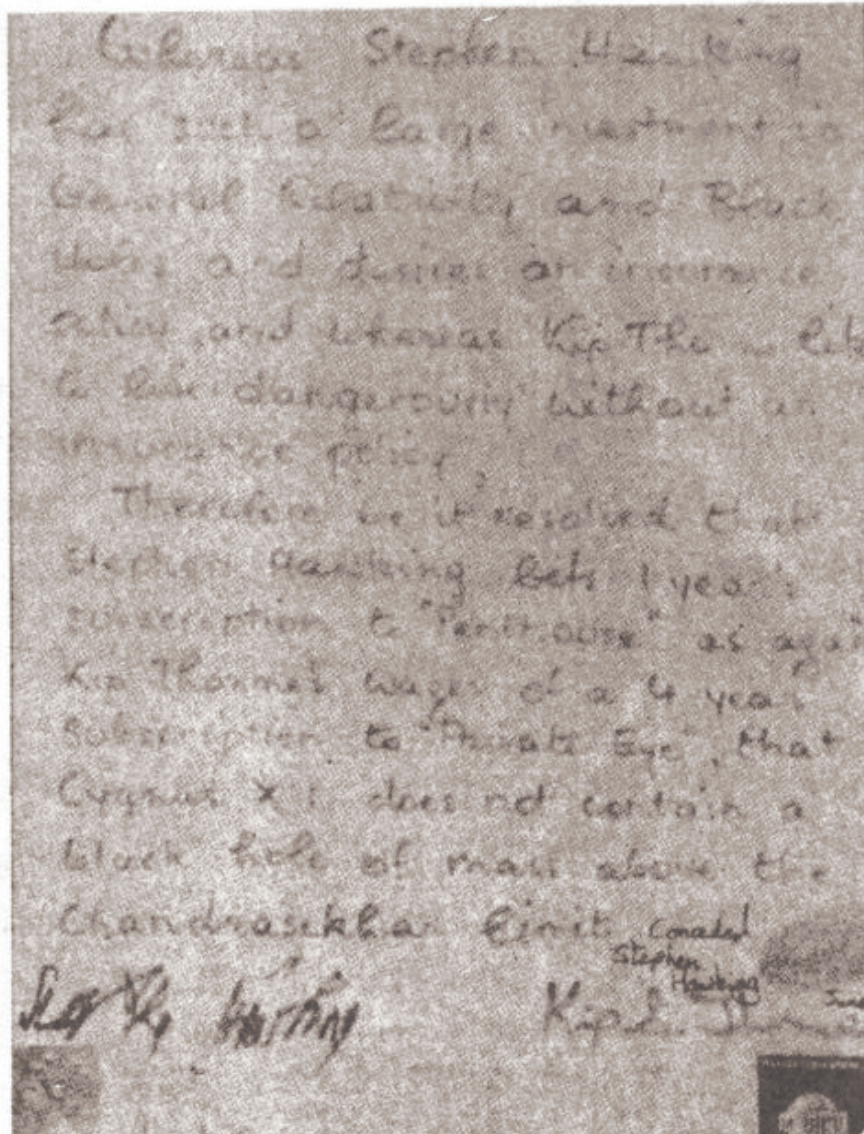 Whereas Stephen Hawking
has such a large investment in
General Relativity and Black
Holes and desires an insurance
policy, and whereas Kip Thorne likes
to live dangerously without an
insurance policy,
Therefore be it resolved that
Stephen Hawking bets 1 year's
subscription to "Penthouse" as against
Kip Thorne's wager of a 4 year
subscription to "Private Eye", that
Cygnus X 1 does not contain a
black hole of mass above the
Chandrasekhar limit
Conceded
Stephen
Hawking
Stephen Hawking Kip